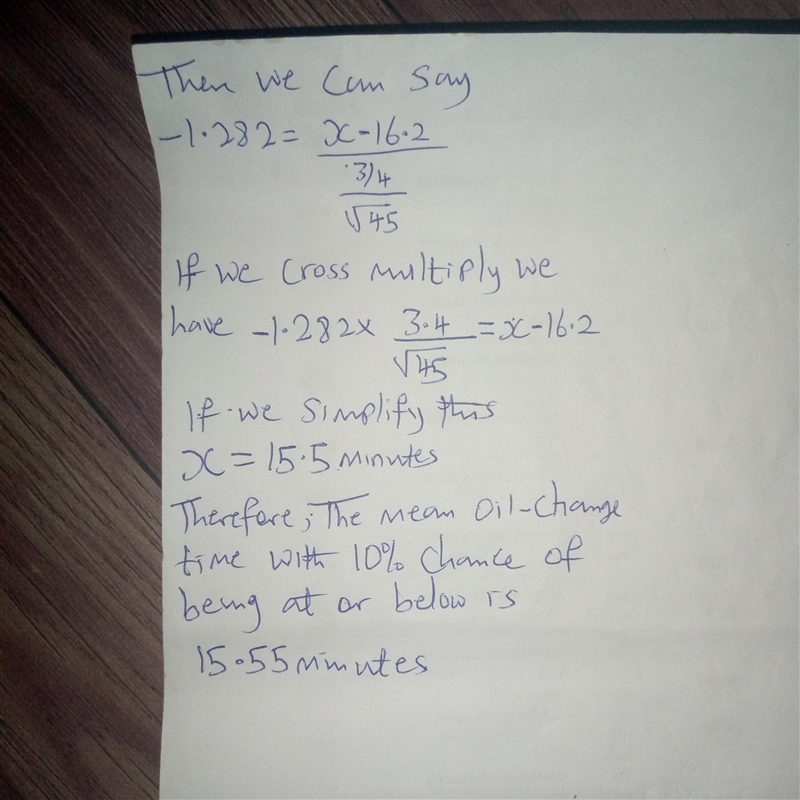 Then we can say
-1.282 = x-16.2
3/4
√45
If we cross multiply we
have -1.282x 3.4 = x-16.2
√45
If we simplify this
x = 15.5 minutes
Therefore, The mean oil-change
time with 10% chance of
being at or below is
15.55 minutes